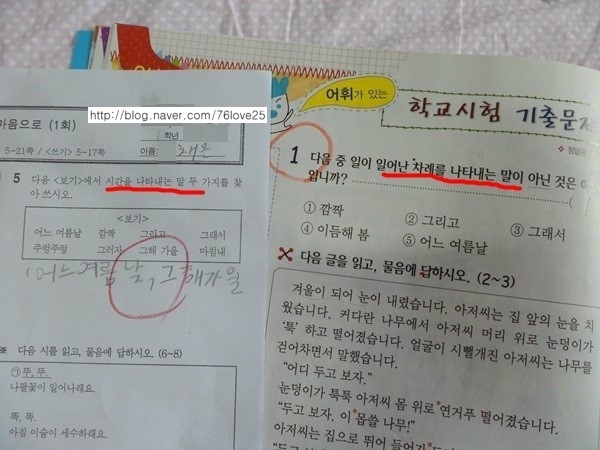 http://blog.naver.com/76love25
마음으로 (1회)
학년
5~21쪽 / <쓰기> 5~17쪽
이름: 채은
5 다음 <보기>에서 시간을 나타내는 말 두 가지를 찾
아 쓰시오.
<보기>
어느 여름날 깜짝 그리고 그래서
주렁주렁 그러자 그해 가을 마침내
어느여름 날, 그 해가을
※ 다음 시를 읽고, 물음에 답하시오. (6~8)
㉠ 뚜, 뚜.
나팔꽃이 일어나래요.
똑, 똑.
아침 이슬이 세수하래요.
어휘가 있는
학교시험 기출문제
정답은
1 다음 중 일이 일어난 차례를 나타내는 말이 아닌 것은
입니까? (
① 깜짝 ② 그리고 ③ 그래서
④ 이듬해 봄 ⑤ 어느 여름날
다음 글을 읽고, 물음에 답하시오. (2~3)
겨울이 되어 눈이 내렸습니다. 아저씨는 집 앞의 눈을 치
웠습니다. 커다란 나무에서 아저씨 머리 위로 눈덩이가
'툭' 하고 떨어졌습니다. 얼굴이 시뻘개진 아저씨는 나무를
걷어차면서 말했습니다.
"어디 두고 보자."
눈덩이가 툭툭 아저씨 몸 위로 연거푸 떨어졌습니다.
"두고 보자. 이 몹쓸 나무!"
아저씨는 집으로 뛰어 들어가